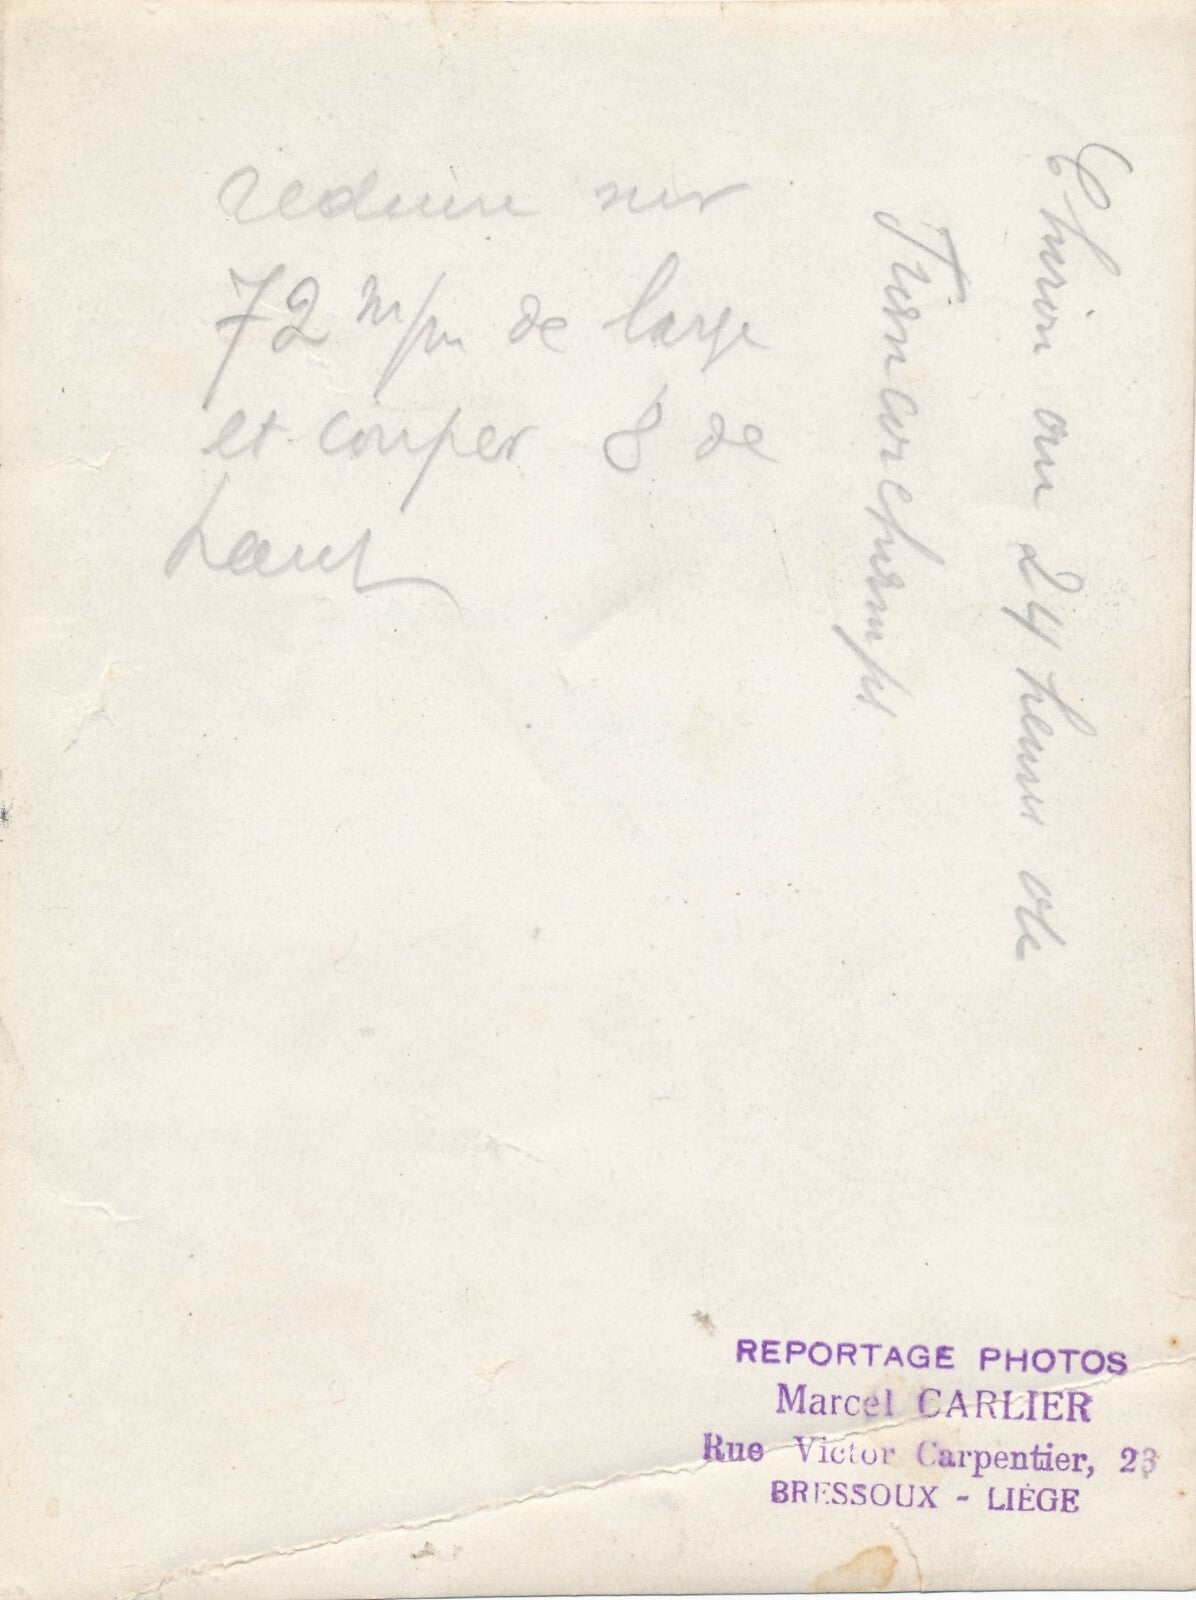 reduire sur
72 m/m de large
et couper 8 de
haut
Chiron au 24 heures de
Francorchamps
REPORTAGE PHOTOS
Marcel CARLIER
Rue Victor Carpentier, 23
BRESSOUX - LIÉGE